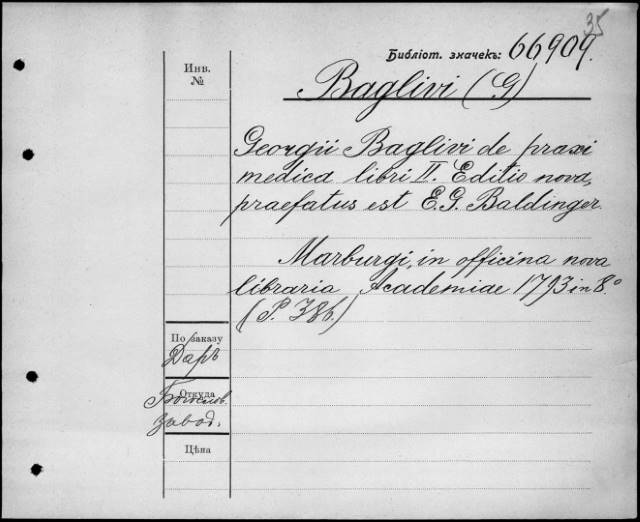 35
Библіот. значекъ: 66909.
Инв.
№
Baglivi (G)
Georgii Baglivi de praxi
medica libri II. Editio nova,
praefatus est E.G. Baldinger.
Marburgi, in officina nova
libraria Academiae 1793 in 8.°
(P. 386.)
По заказу
Даръ
Откуда
Богослов.
завод.
Цѣна